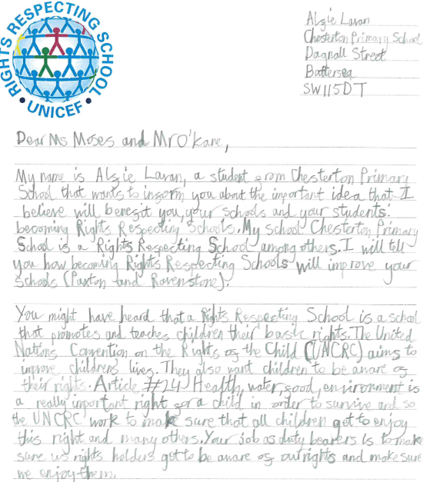 RIGHTS RESPECTING SCHOOL
• UNICEF •
Algie Lavan
Chesterton Primary School
Dagnall Street
Battersea
SW11 5DT
Dear Ms Moses and Mr O'kane,
My name is Algie Lavan, a student from Chesterton Primary
School that wants to inform you about the important idea that I
believe will benefit you, your schools and your students:
becoming Rights Respecting Schools. My school Chesterton Primary
School is a Rights Respecting School among others. I will tell
you how becoming Rights Respecting Schools will improve your
schools (Paxton and Ravenstone).
You might have heard that a Rights Respecting School is a school
that promotes and teaches children their basic rights. The United
Nations Convention on the Rights of the Child (UNCRC) aims to
improve children's lives. They also want children to be aware of
their rights. Article #24 Health, water, food, environment is
a really important right for a child in order to survive and so
the UNCRC work to make sure that all children get to enjoy
this right and many others. Your job as duty bearers is to make
sure us rights holders get to be aware of our rights and make sure
we enjoy them.